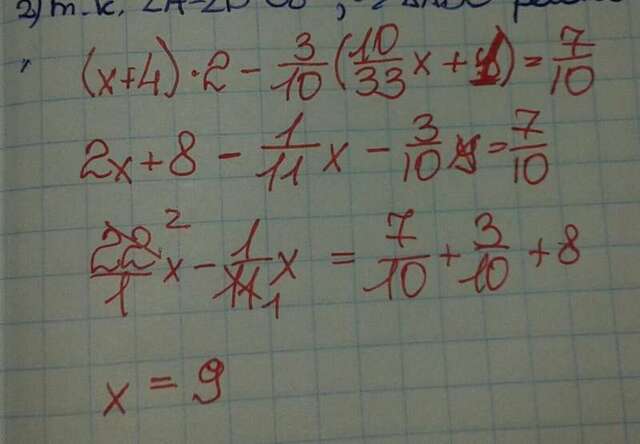 2) т.к. ∠A=∠
(x+4)·2 - 3/10(10/33x + 1) = 7/10
2x+8 - 1/11x - 3/10 = 7/10
22/1x² - 1/11₁x = 7/10 + 3/10 + 8
x = 9